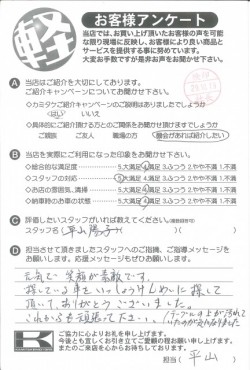 軽
お客様アンケート
当店では、お買い上げ頂いたお客様の声を可能
な限り現場に反映し、お客様により良い商品と
サービスを提供する事に努めています。
大変お手数ですが是非お声をお聞かせ下さい。
A 当店はご紹介を大切にしております。
ご紹介キャンペーンについてお聞かせ下さい。
◇カミタケご紹介キャンペーンのご説明はありましたでしょうか
はい いいえ
◇具体的にご紹介頂ける方とのご関係をお聞かせ頂けますでしょうか
ご親族 ご友人 職場の方 機会があれば紹介したい
B 当店を実際にご利用になった印象をお聞かせ下さい。
◇総合的な満足度 5.大満足 4.満足 3.ふつう 2.やや不満 1.不満
◇スタッフの対応 5.大満足 4.満足 3.ふつう 2.やや不満 1.不満
◇お店の雰囲気、清掃 5.大満足 4.満足 3.ふつう 2.やや不満 1.不満
◇納車時のお車の状態 5.大満足 4.満足 3.ふつう 2.やや不満 1.不満
C 評価したいスタッフがいれば教えてください。(複数回答可)
スタッフ名( 平山陽子 )( )( )
D 担当させて頂きましたスタッフへのご指摘、ご応援メッセージを
お願いします。応援メッセージもぜひお願いします。
元気で笑顔が素敵です。
探している車をいっしょうけんめいに探して
頂いて、ありがとうございました。
これからも頑張って下さい。
(テーブルの上が汚れて
いたのが気になりました
K ご協力に心よりお礼を申し上げます。
今後とも宜しくお引き立てご愛顧の程お願い申し上げます。
またのご来店を心からお待ちしております。
担当( 平山 )